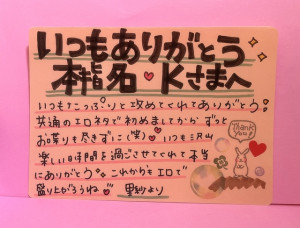 いつもありがとう
本指名♥Kさまへ
いつもてこっぷりと攻めてくれてありがとう
共通のエロネタで初めましてから ずっと
お喋りも尽きずに(笑)♥ いつも沢山
楽しい時間を過ごさせてくれて本当
にありがとう これからもエロで
盛り上がろうね 里紗より
THANK YOU!